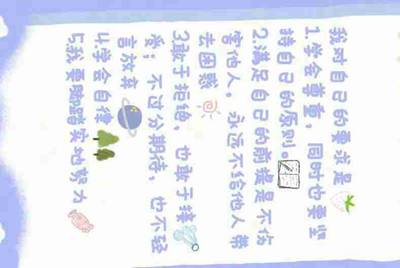 我对自己的要求是
1.学会尊重，同时也要坚
持自己的原则。
2.满足自己的前提是不伤
害他人。永远不给他人带
去困惑
3敢于拒绝，也敢于接
受；不过分期待，也不轻
言放弃
4.学会自律
5我要脚踏实地努力